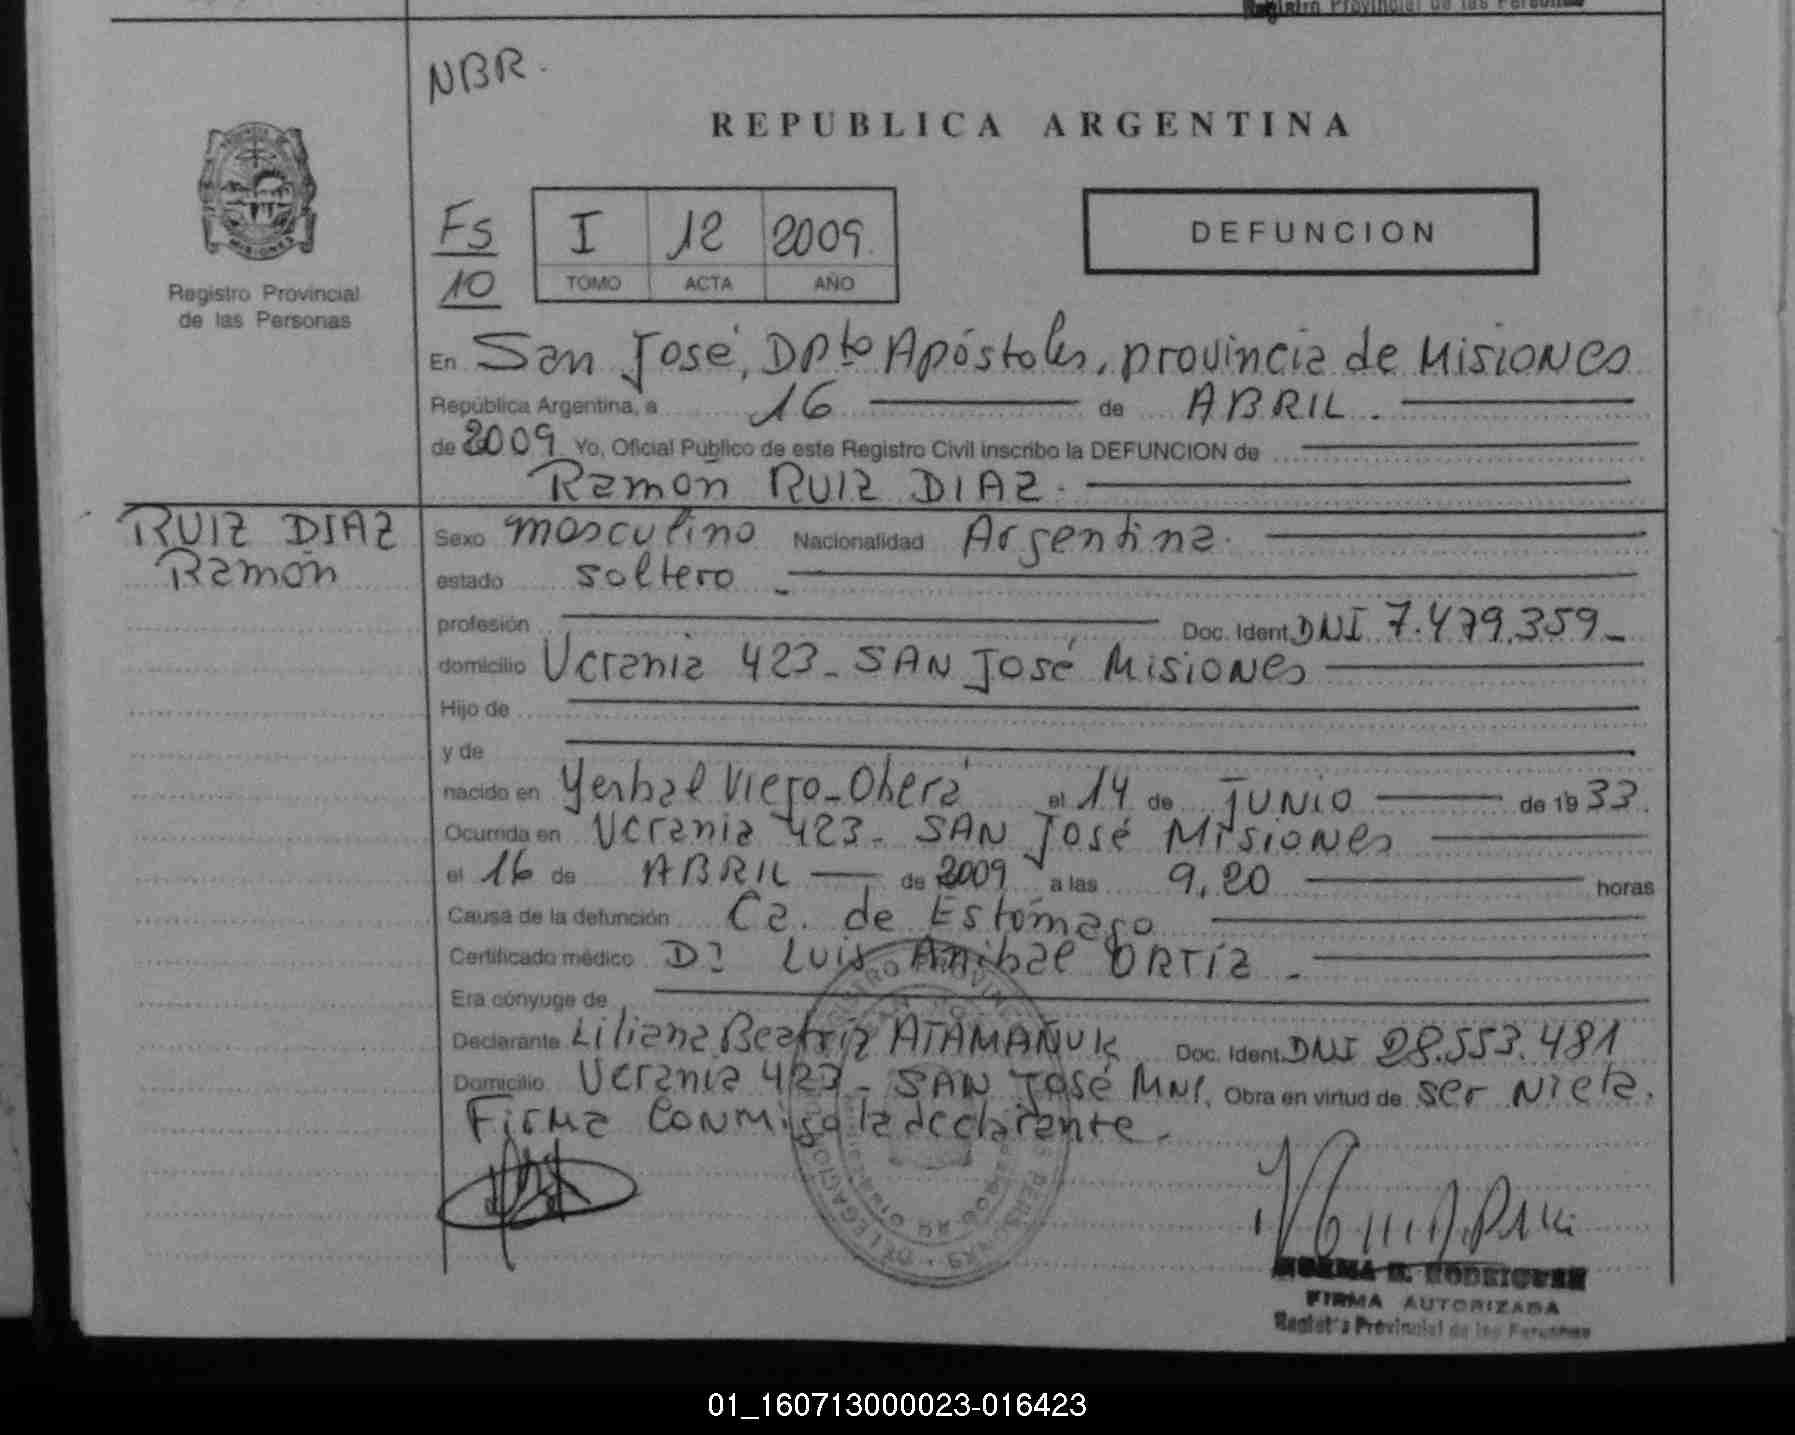 Registro Provincial de las Personas
NBR.
REPUBLICA ARGENTINA
MISIONES
Registro Provincial
de las Personas
Fs
10
I 12 2009.
TOMO ACTA AÑO
DEFUNCION
En San José, Dpto Apóstoles, provincia de Misiones
República Argentina, a 16 de ABRIL.
de 2009 Yo, Oficial Público de este Registro Civil inscribo la DEFUNCION de
Ramón RUIZ DIAZ.
RUIZ DIAZ
Ramón
Sexo masculino Nacionalidad Argentina.
estado soltero
profesión Doc. Ident. DNI 7.479.359_
domicilio Ucrania 423_ SAN José Misiones
Hijo de
y de
nacido en Yerbal Viejo_Oberá el 14 de JUNIO de 1933.
Ocurrida en Ucrania 423_ SAN José Misiones
el 16 de ABRIL de 2009 a las 9,20 horas
Causa de la defunción Ca. de Estómago
Certificado médico Dr Luis Anibal ORTIZ _
Era cónyuge de
Declarante Liliana Beatriz ATAMAÑUK Doc. Ident. DNI 28.553.481
Domicilio Ucrania 423_ SAN José Mnes. Obra en virtud de ser Nieta.
Firma conmigo la declarante.
NORMA B. RODRIGUEZ
FIRMA AUTORIZADA
Registro Provincial de las Personas
01_160713000023-016423